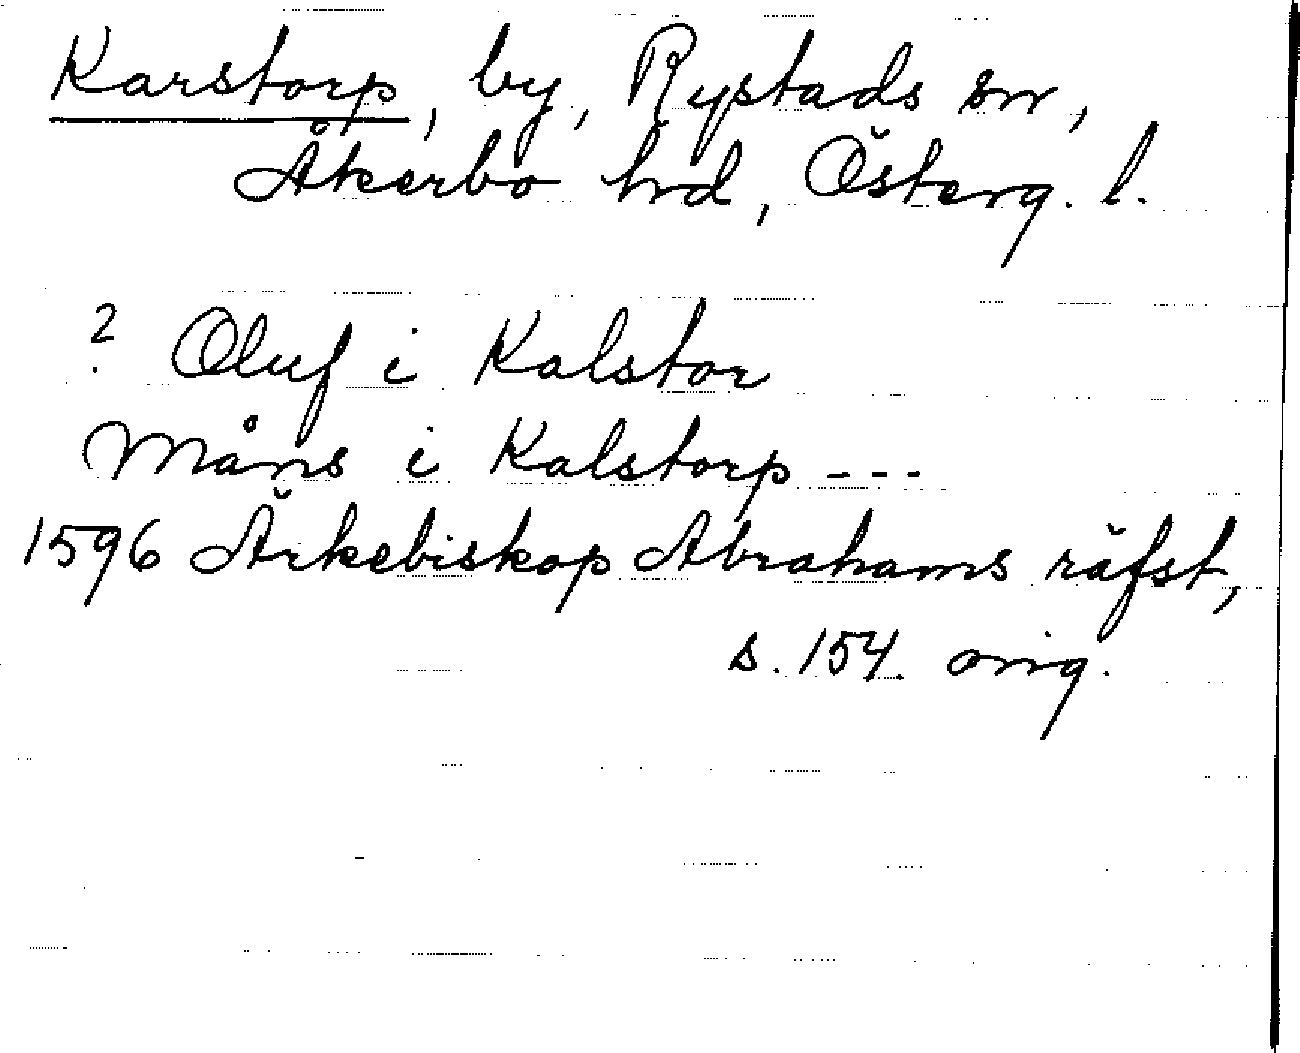 Karstorp, by, Rystads sn,
Åkerbo hrd, Österg. l.
? Oluf i Kalstor
Måns i Kalstorp - - -
1596 Ärkebiskop Abrahams räfst,
s. 154. orig.